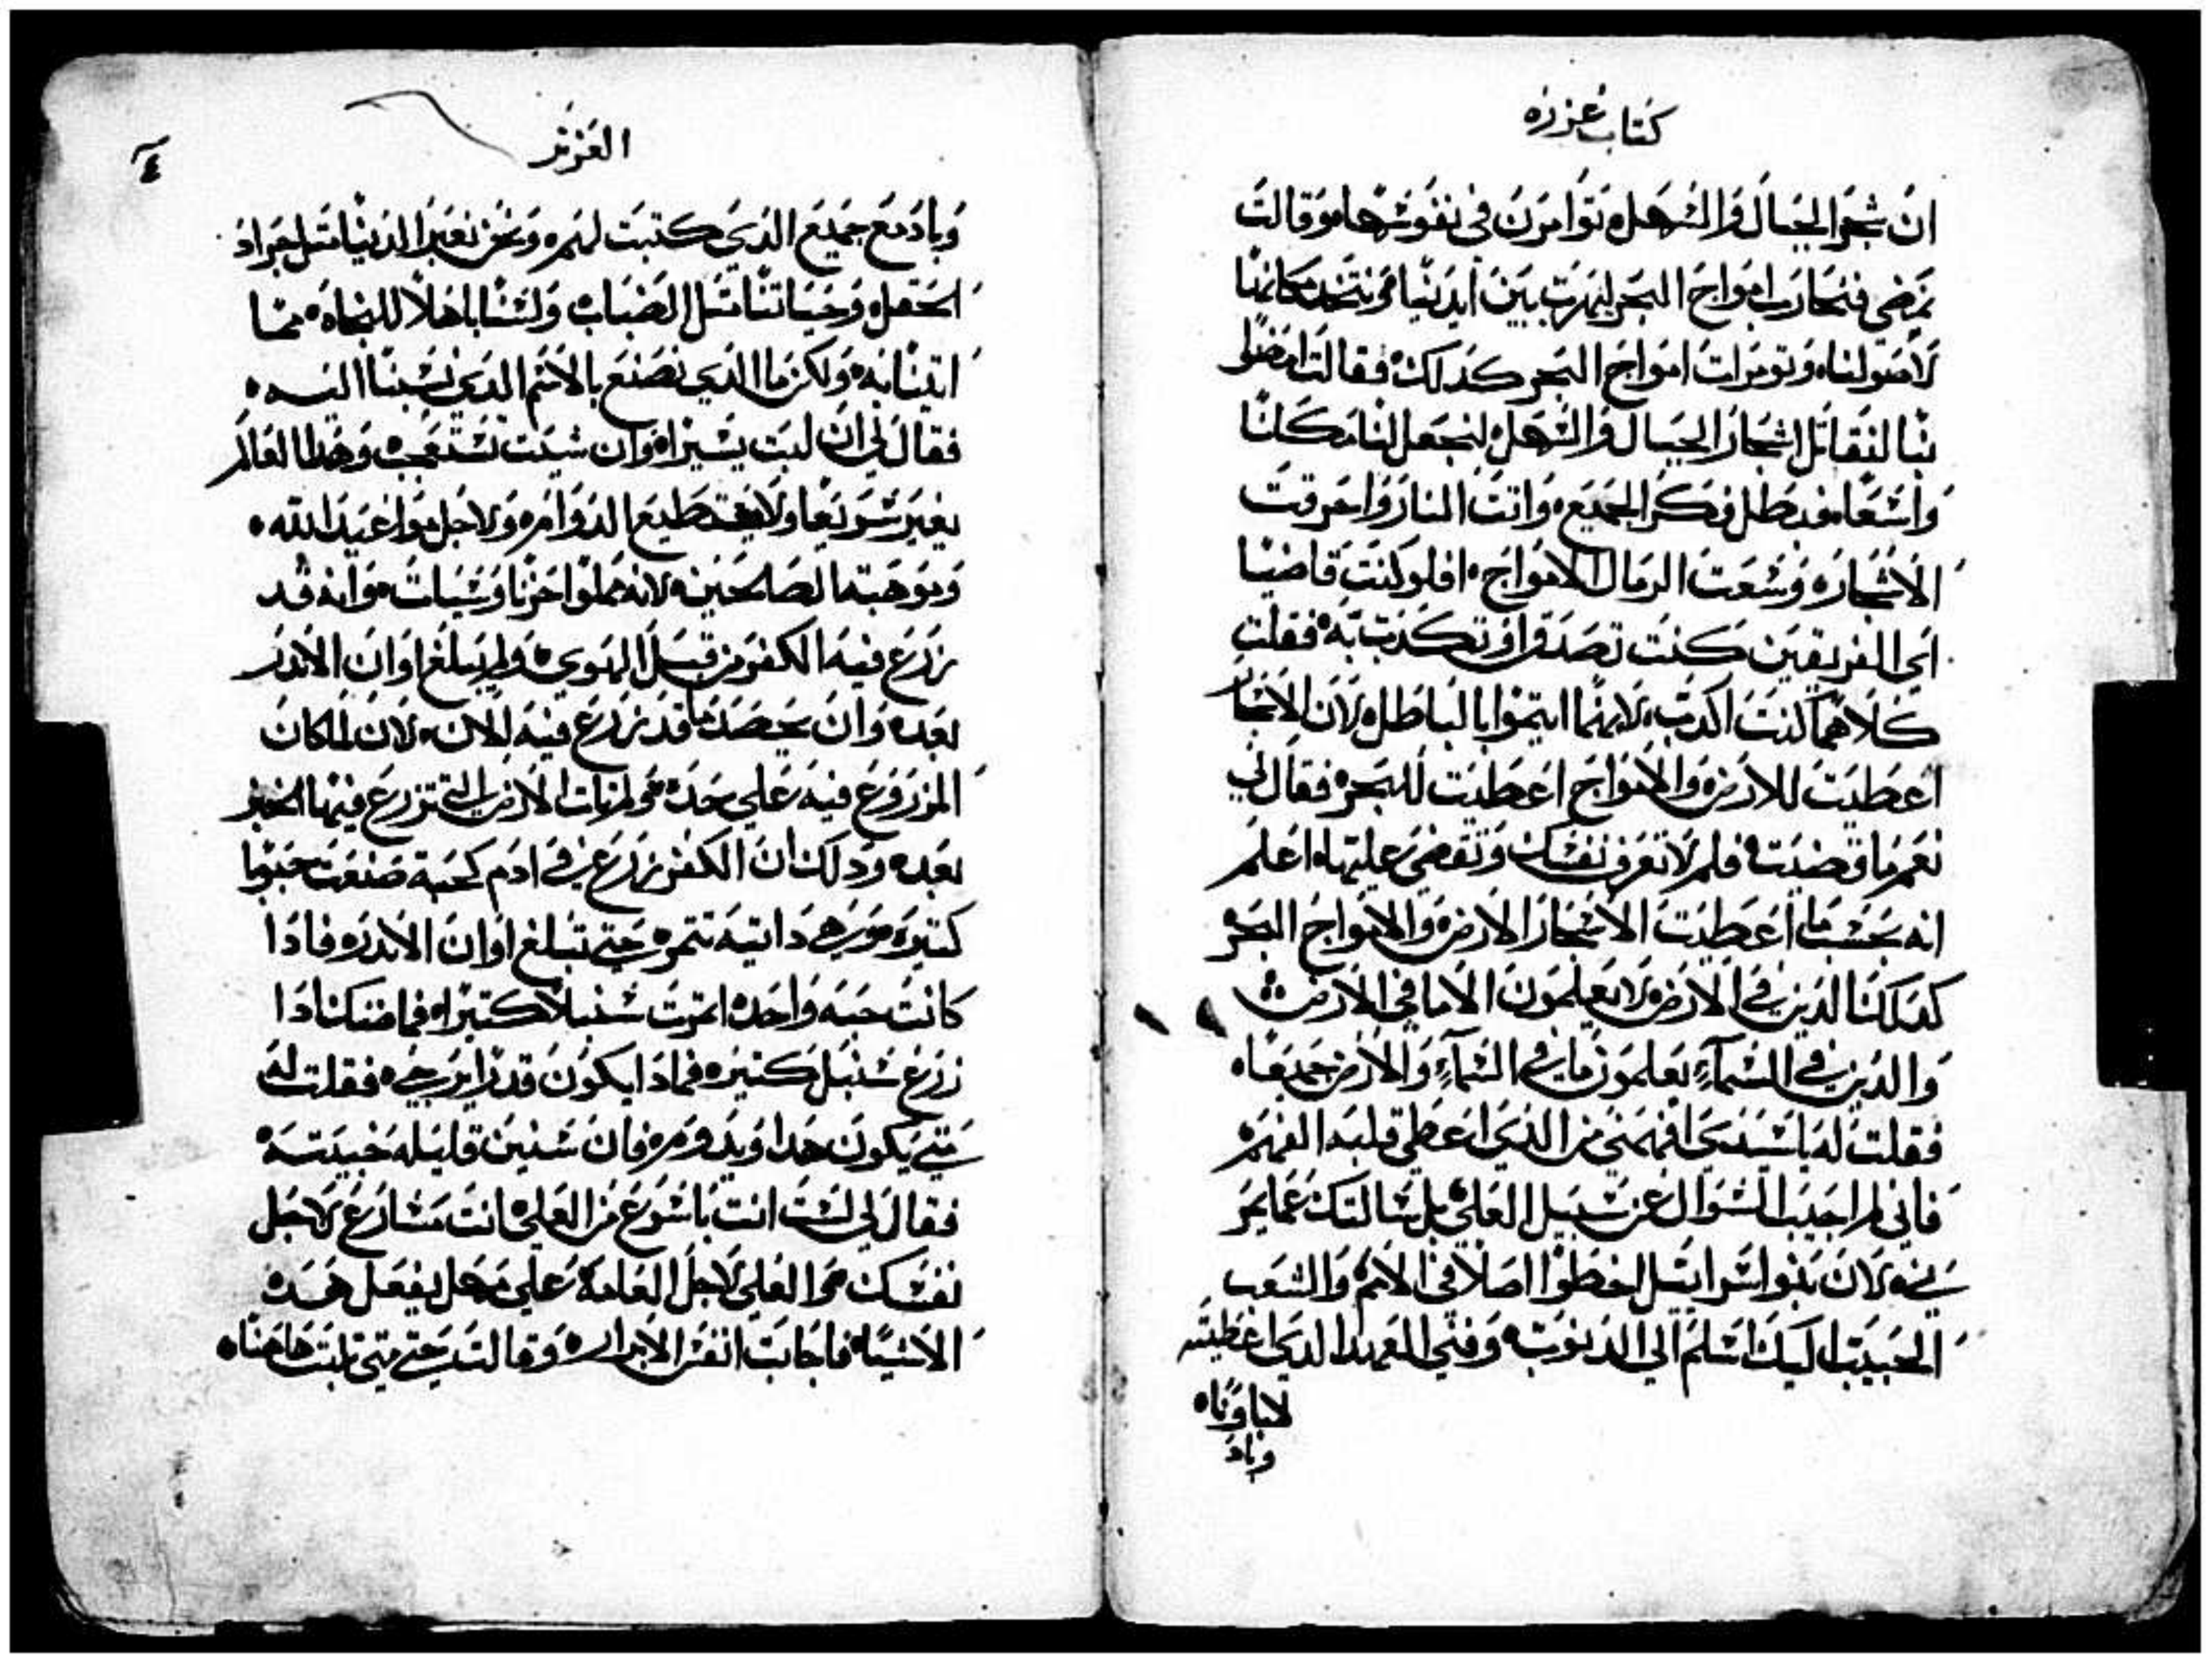 كتاب عزره
ان شجر الجبال والسهل توامرن في نفوسها وقالت
نمضي فنحارب امواج البحر ليهرب بين ايدينا ونتخد مكانها
لاصولنا وتومرات امواج البحر كدلك فقالت امضوا
بنا لنقاتل اشجار الجبال والسهل لنجعل لنا مكانا
واسعا فبطل فكر الجميع واتت النار واحرقت
الاشجاره وسعت الرمال الامواج افلو كنت قاضيا
اي الفريقين كنت تصدق او تكدب به فقلت
كلاهما كنت اكدب لانهما ايتموا بالباطل لان الاشجار
اعطيت للارض والامواج اعطيت للبحر فقال لي
نعم ما قضيت فلم لا تعرف نفسك وتقضي عليها اعلم
انه بحسب ما اعطيت الاشجار الارض والامواج البحر
كدلك الدين في الارض لا يعلمون الا ما في الارض
والدين في السماء يعلمون ما في السماء والارض جميعا
فقلت له يا سيدي افهمني من الدي اعطي قلبه الفهم
فاني لم اجيب السوال عن سبيل العلي بل سالتك عما يمر
بي لان بنوا اسرايل اخطوا اصلا في الامم والشعب
الحبيب اليك اسلم الي الدنوب وفني العهد الدي اعطيته
لاباونا
وباد
العزيز
٤
وباد مع جميع الدي كتبت لهم ونحن نعبر الدنيا متل جراد
الحقل وحياتنا متل الضباب ولسنا باهلا للنجاه مما
اتينا به ولكن ما الدي نصنع بالاسم الدي نسبنا اليه
فقال لي ان لبت يسيرا وان شيت تستعجب وهدا العالم
يعبر سريعا ولا يستطيع الدوامه ولاجل مواعيد الله
وموهبته الصالحين لانه مملوا حزنا وسيات وانه قد
زرع فيه الكفر من قبل الهوي ولم يبلغ اوان الاندر
بعده وان يحصد ما قد زرع فيه الان لان المكان
المزروع فيه علي حده ولم تات الارض التي تزرع فيها الخير
بعده ودلك ان الكفر زرع في ادم كحبة صنعت حبوبا
كتيره وهي دابيه تتمره حتي تبلغ اوان الاندره فادا
كانت حبه واحده اتمرت سنبلا كتيرا فما ضنك ادا
زرع سنبل كتيره فمادا يكون قدرا يرجي فقلت له
متي يكون هدا ويدومه فان سنين قليله خبيته
فقال لي لست انت باسرع من العلي انت مسارع لاجل
نفسك والعلي لاجل العامة علي مهل يفعل هده
الاشيا فاجابت انفس الابرار وقالت حتي متي نلبت هاهنا